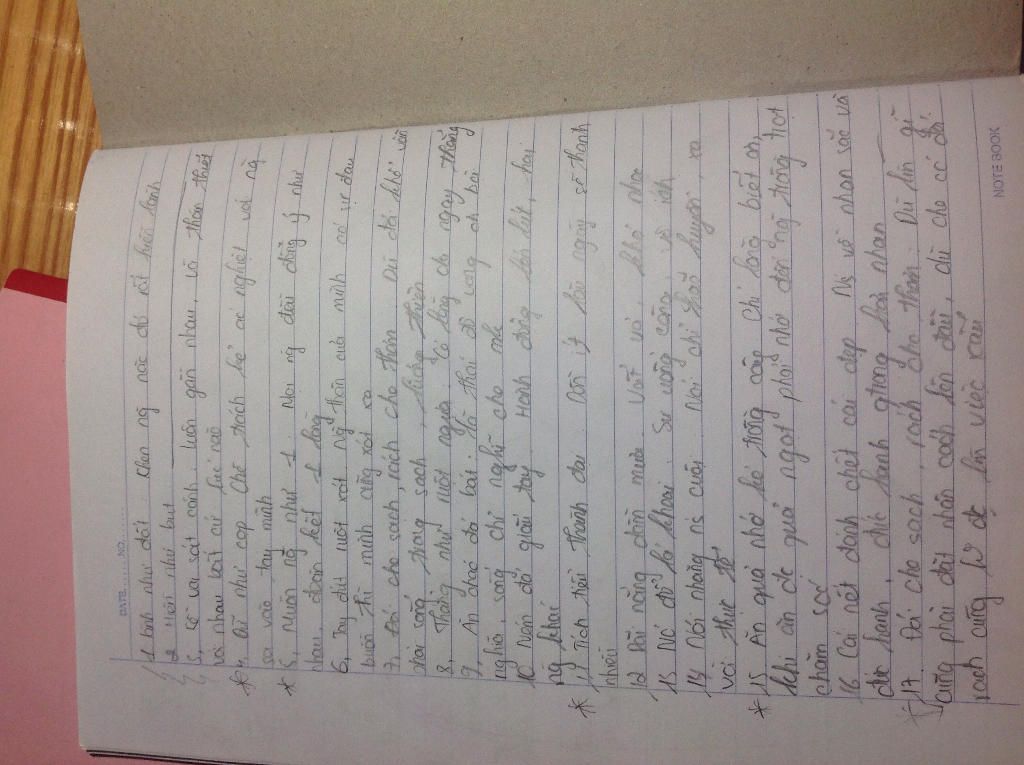 DATE............NO............
1 Lành như đất. Khen ng nào đó rất hiền lành
2, Hiền như bụt
3, Kề vai sát cánh. luôn gần nhau, và thân thiết
với nhau bất cứ lúc nào
* 4, Dữ như cọp. Chê trách kẻ ác nghiệt với ng
sa vào tay mình
* 5, Muôn ng như 1. Mọi ng đều đồng ý như
nhau, đoàn kết 1 lòng
6, Tay đứt ruột xót. Ng thân của mình có sự đau
buồn thì mình cũng xót xa
7, Đói cho sạch, rách cho thơm. Dù đói khổ vẫn
phải sống trong sạch, lương thiện
8, Thẳng như ruột ngựa. Có lòng dạ ngay thẳng
9, Ăn chắc đòi bát. Lố thói đò vong ơn bội
nghĩa, sống chỉ nghĩ cho mk
10 Ném đá giấu tay. Hành động lén lút, hại
ng khác
* 11 Tích tiểu thành đại. Dồn ít lâu ngày sẽ thành
nhiều
12 Dãi nắng dầm mưa. Vất vả, khó nhọc
13 Nó đổ lổ khai. Sự uổng công, vô ích
14 Nói nhăng ns cuội. Nói chỉ khoả huyên, xa
vời thực tế
* 15 Ăn quả nhớ kẻ trồng cây. Chỉ lòng biết ơn,
khi ăn đc quả ngọt phải nhớ đến ng trồng trọt
chăm sóc
16 Cái nết đánh chết cái đẹp. Ns về nhan sắc và
đức hạnh, đức hạnh quan trọng hơn nhan
* 17. Đói cho sạch, rách cho thơm. Dù làm gì
cũng phải đặt nhân cách lên đầu, dù cho có đói
rách cũng ko đc làm việc xấu
NOTE BOOK